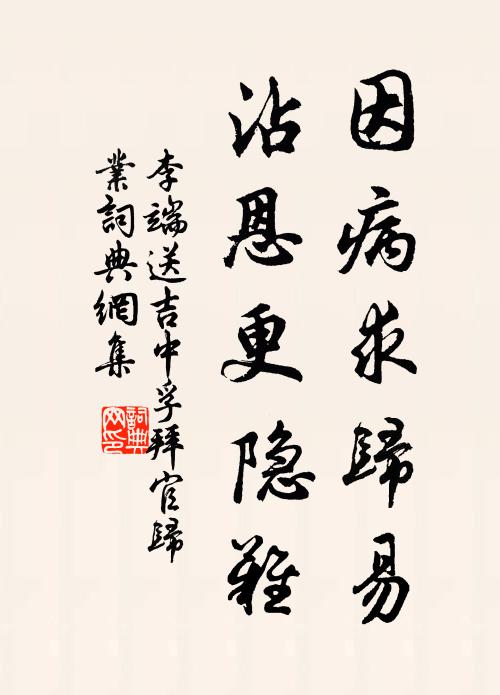 因病求歸易
沾恩更隐難
李端送吉中孚拜官歸
業詞典網集
詞典网印